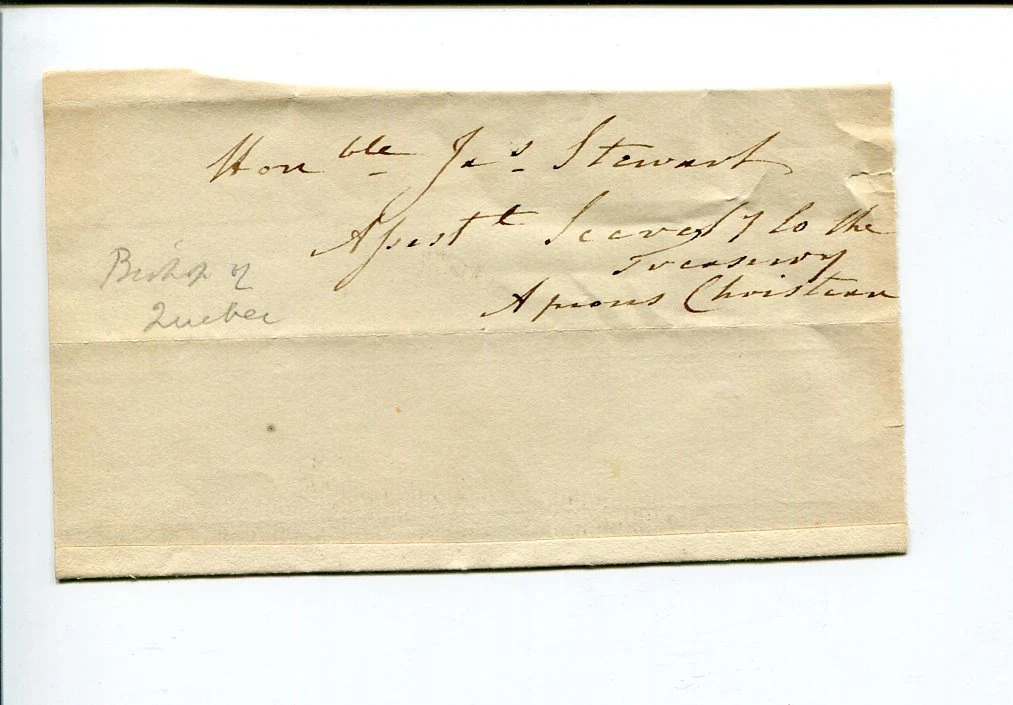 Honble Jas Stewart
Assistt Secrety to the
Treasury
A pious Christian
Bishop of
Quebec